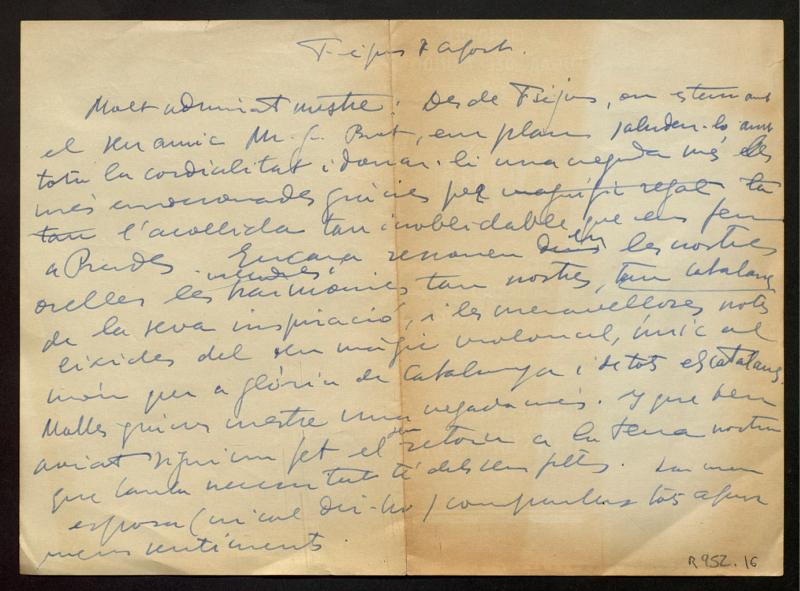 Fréjus 7 agost.
Molt admirat mestre: Desde Fréjus, on estem amb
el seu amic Mr. J. Brut, em plau saludar-lo amb
tota la cordialitat i donar-li una vegada més les
més emocionades gràcies pel magnífic regal
tan l'acollida tan inoblidable que ens feu
a Prades. Encara resonen dins en les nostres
orelles les harmonies tan nostres, tan catalanes
de la seva inspiració, i les meravelloses notes
eixides del seu màgic violoncel, únic al
món per a glòria de Catalunya i de tots els catalans.
Moltes gràcies mestre una vegada més. I que ben
aviat siguin fet el seu retorn a la terra nostra
que tanta necessitat té dels seus fills. La meva
esposa (ni cal dir-ho) comparteix tots aquests
meus sentiments.
R 952.16